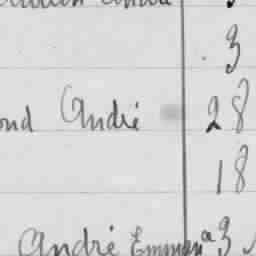 3
ond André 28
18
André Emman 3